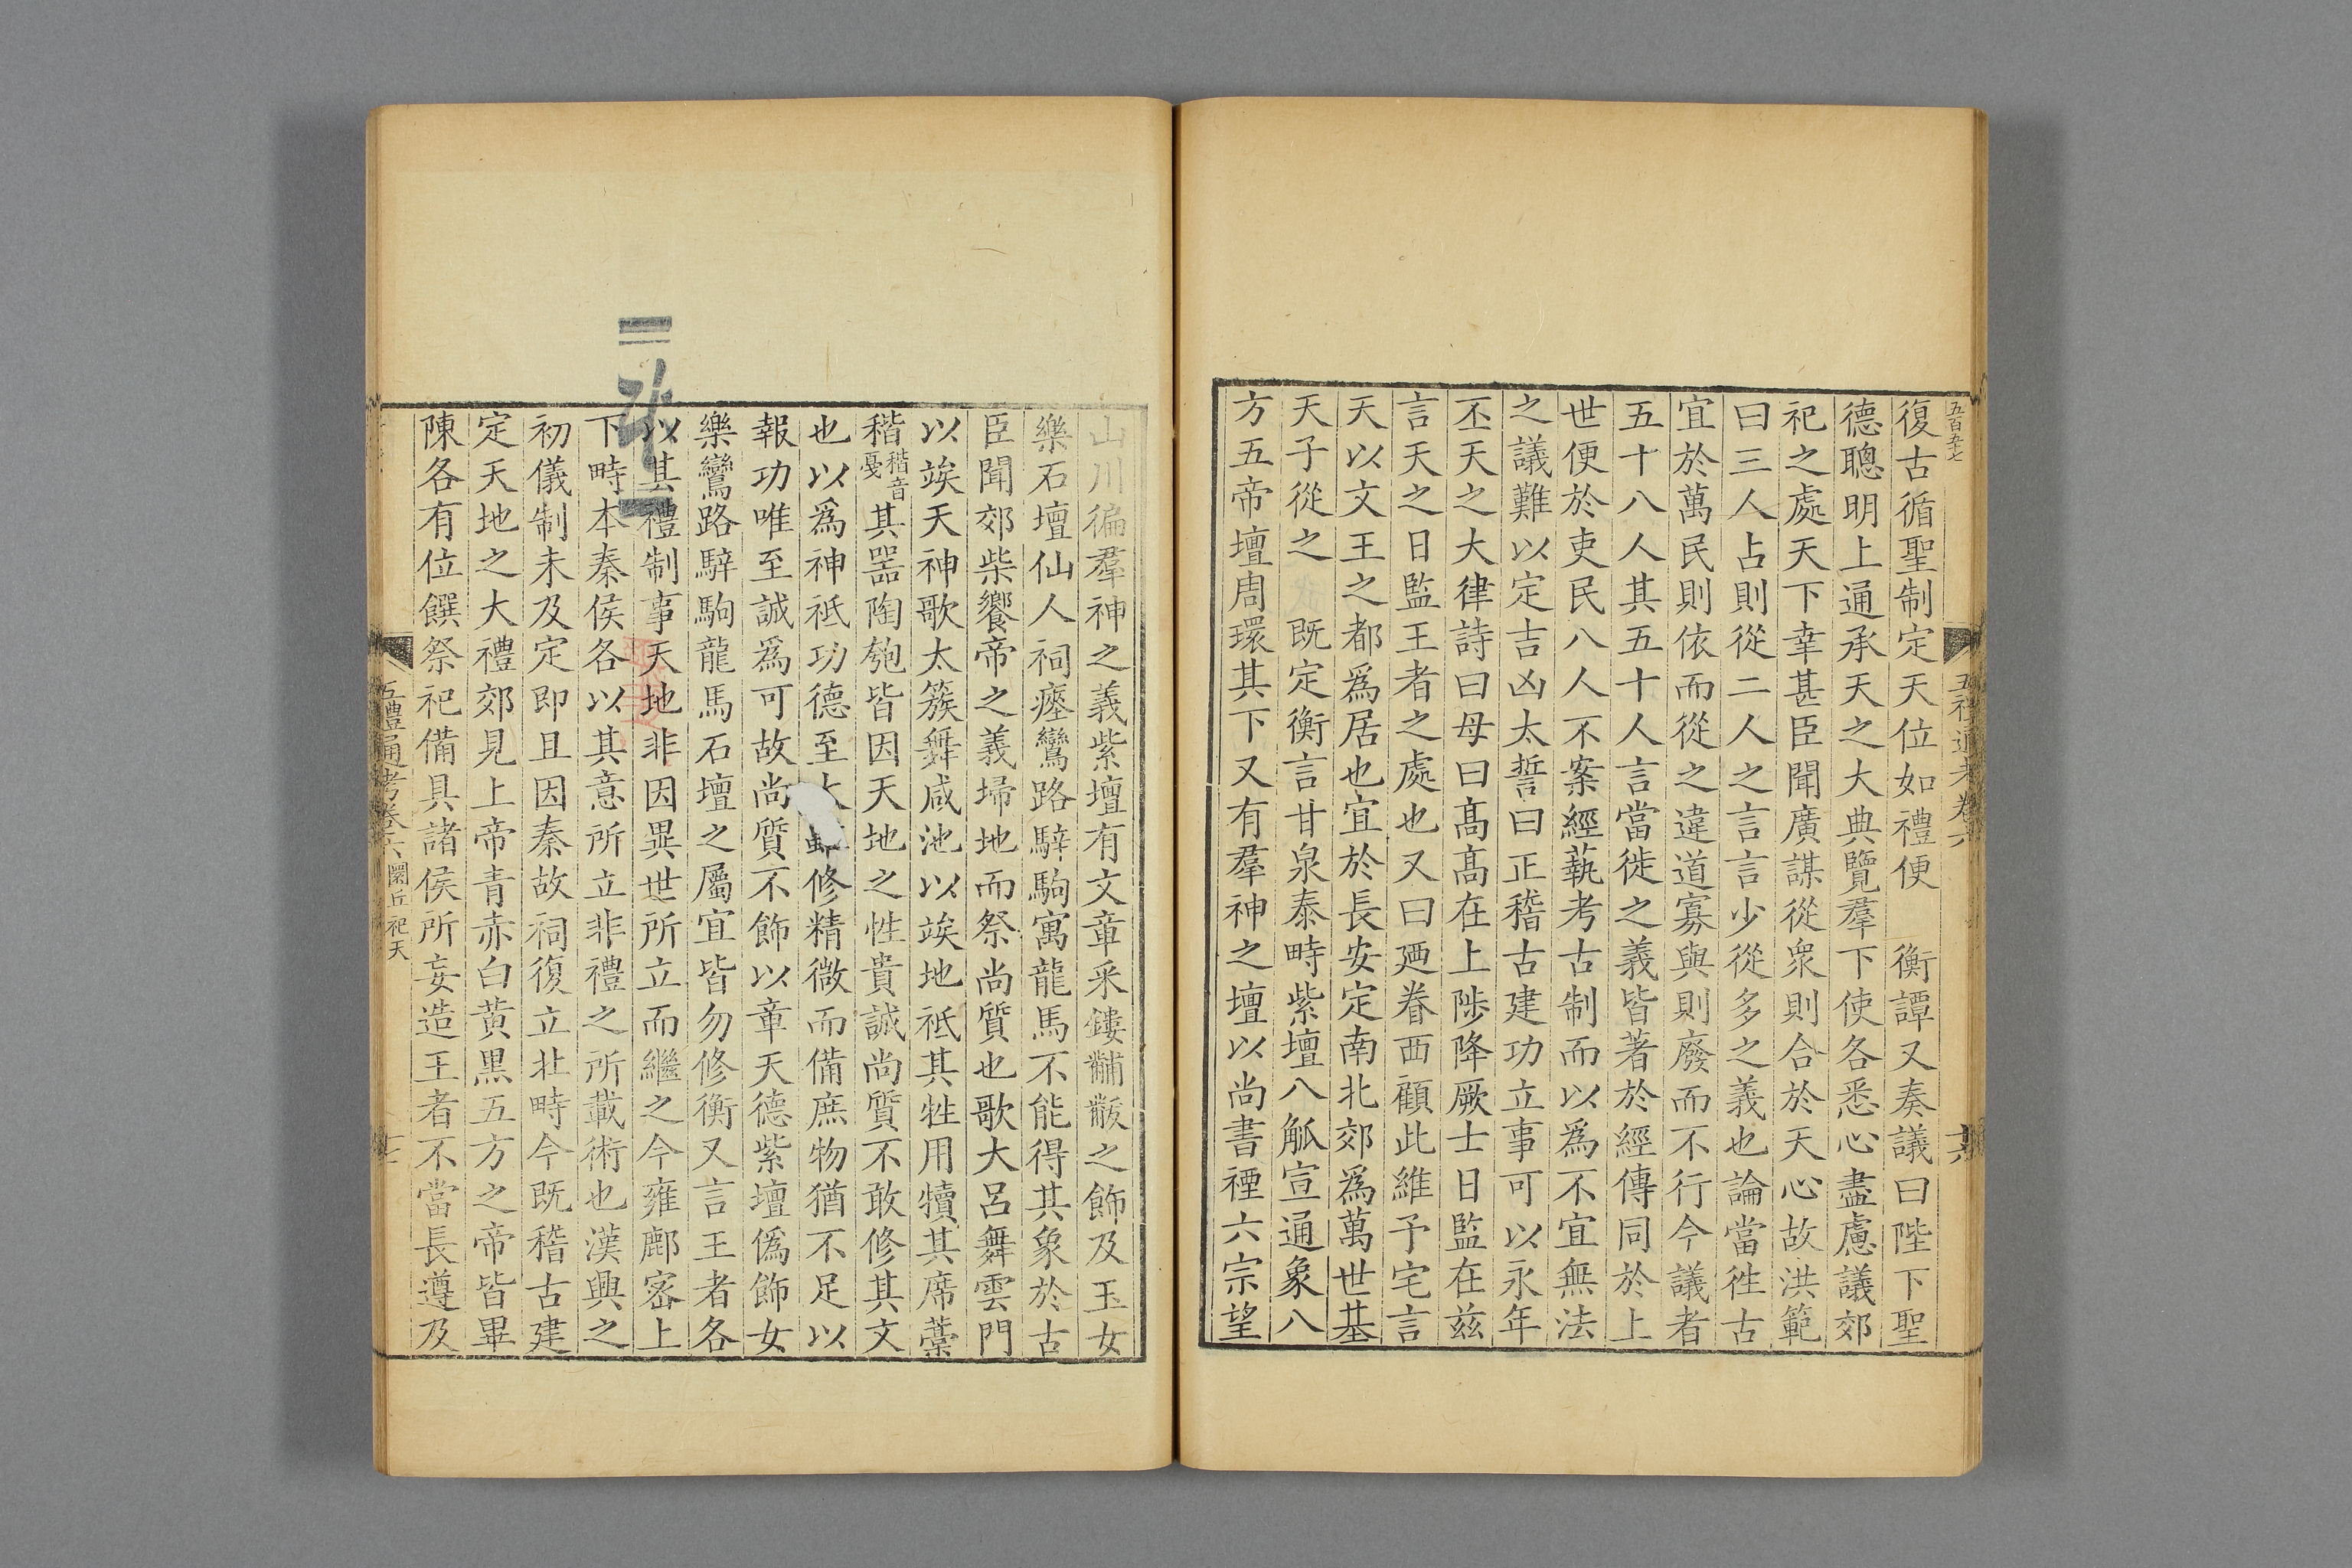 五百九十七
五禮通考卷六
十六
復古循聖制定天位如禮便　衡譚又奏議曰陛下聖
德聰明上通承天之大典覽羣下使各悉心盡慮議郊
祀之處天下幸甚臣聞廣謀從衆則合於天心故洪範
曰三人占則從二人之言言少從多之義也論當徃古
宜於萬民則依而從之違道寡與則廢而不行今議者
五十八人其五十人言當徙之義皆著於經傳同於上
世便於吏民八人不案經蓺考古制而以爲不宜無法
之議難以定吉凶太誓曰正稽古建功立事可以永年
丕天之大律詩曰毋曰髙髙在上陟降厥士日監在兹
言天之日監王者之處也又曰廼眷西顧此維予宅言
天以文王之都爲居也宜於長安定南北郊爲萬世基
天子從之　既定衡言甘泉泰畤紫壇八觚宣通象八
方五帝壇周環其下又有羣神之壇以尚書禋六宗望
山川徧羣神之義紫壇有文章采鏤黼黻之飾及玉女
樂石壇仙人祠瘞鸞路騂駒寓龍馬不能得其象於古
臣聞郊柴饗帝之義埽地而祭尚質也歌大呂舞雲門
以竢天神歌太簇舞咸池以竢地祇其牲用犢其席藁
稭稭音戞其噐陶匏皆因天地之性貴誠尚質不敢修其文
也以爲神祇功德至大修精微而備庶物猶不足以
報功唯至誠爲可故尚質不飾以章天德紫壇僞飾女
樂鸞路騂駒龍馬石壇之屬宜皆勿修衡又言王者各
以其禮制事天地非因異世所立而繼之今雍鄜宻上
下畤本秦侯各以其意所立非禮之所載術也漢興之
初儀制未及定即且因秦故祠復立北畤今既稽古建
定天地之大禮郊見上帝青赤白黃黑五方之帝皆畢
陳各有位饌祭祀備具諸侯所妄造王者不當長遵及
五禮通考卷六 圜丘祀天
十七